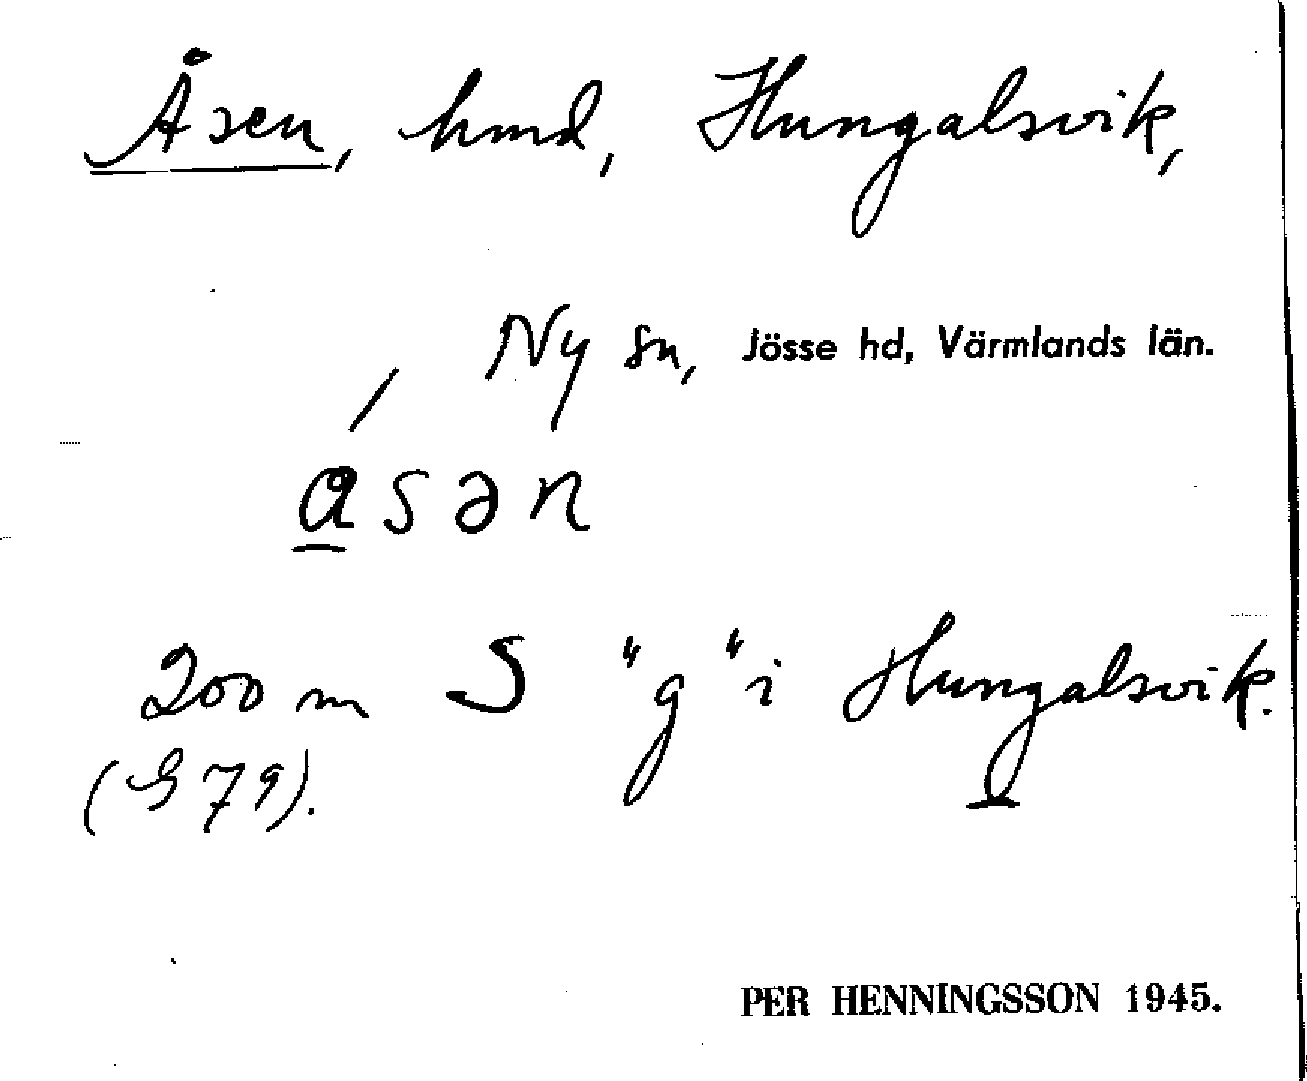 Åsen, hmd, Hungalsvik,
Ny sn, Jösse hd, Värmlands län.
åsən
200 m S "g" i Hungalsvik.
(G 79).
PER HENNINGSSON 1945.